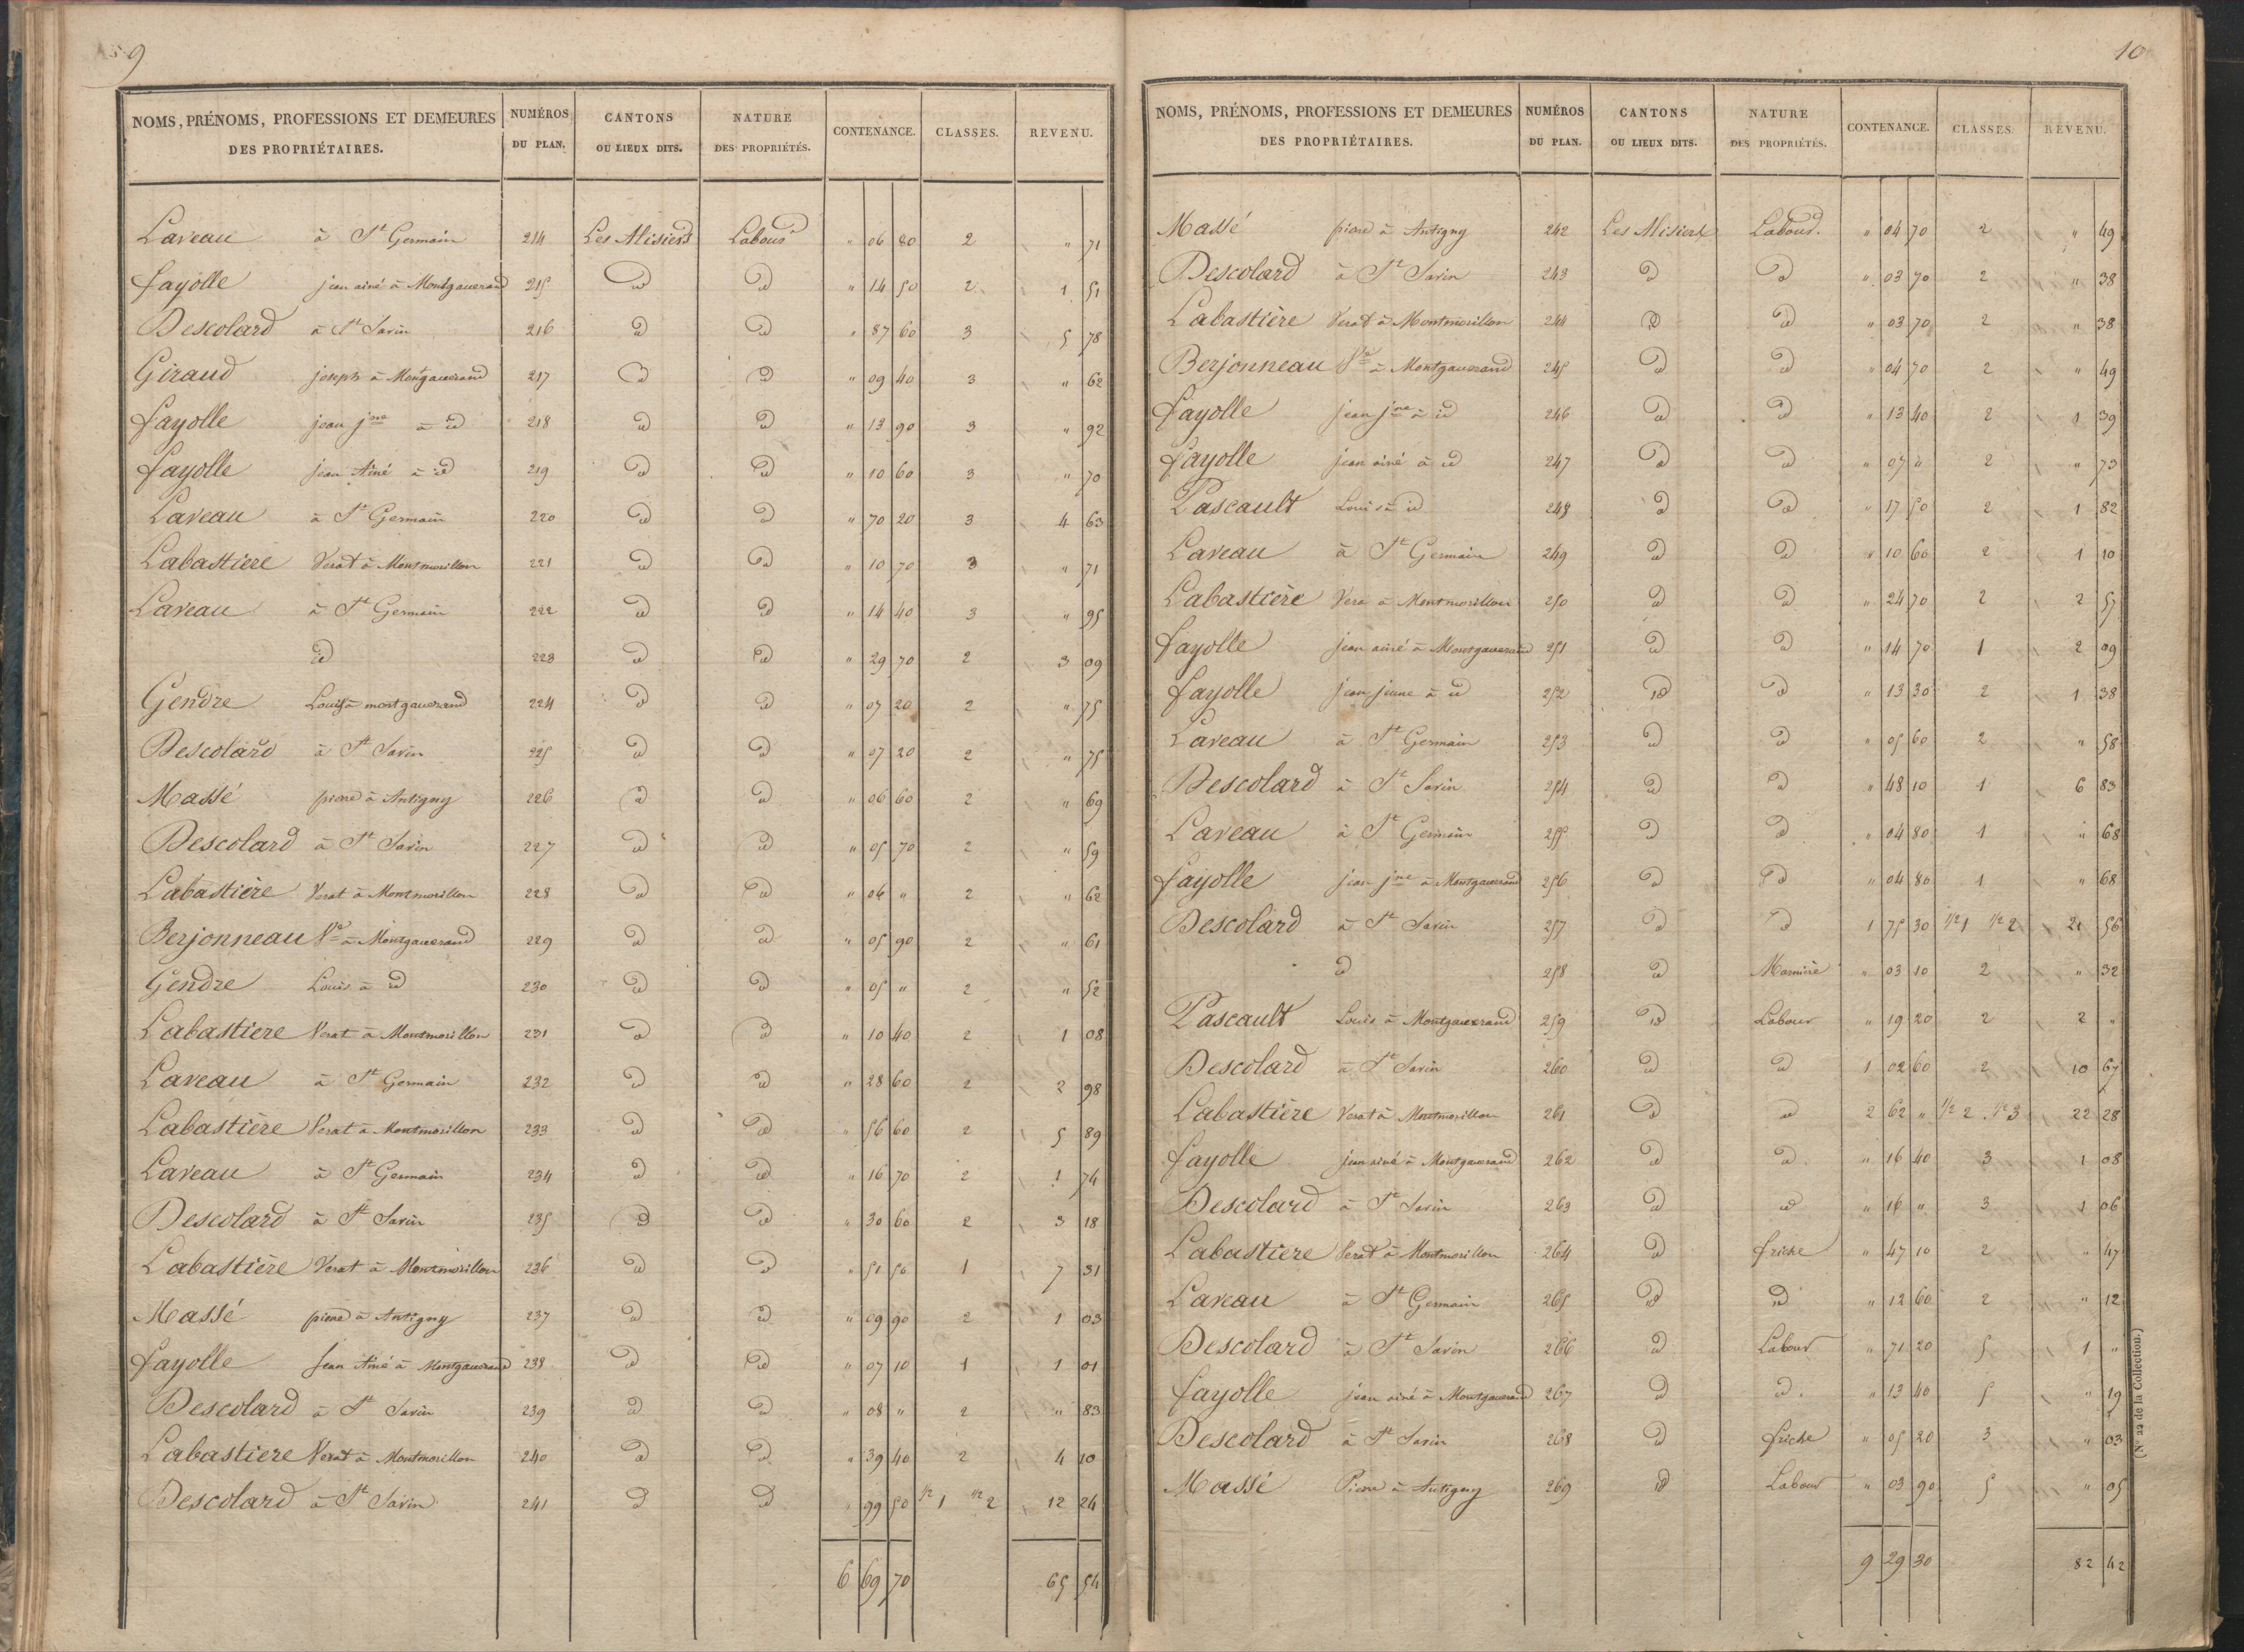 9
NOMS, PRÉNOMS, PROFESSIONS ET DEMEURES DES PROPRIÉTAIRES. NUMÉROS DU PLAN. CANTONS OU LIEUX DITS. NATURE DES PROPRIÉTÉS. CONTENANCE. CLASSES. REVENU.
Laveau à St Germain 214 Les Alisiers Labour " 06 80 2 " 71
fayolle jean ainé à Montgauerand 215 id id " 14 50 2 1 51
Descolard à St Savin 216 id id " 87 60 3 5 78
Giraud joseph à Montgauerand 217 id id " 09 40 3 " 62
fayolle jean jne à id 218 id id " 13 90 3 " 92
fayolle jean Ainé à id 219 id id " 10 60 3 " 70
Laveau à St Germain 220 id id " 70 20 3 4 63
Labastiere Verat à Montmorillon 221 id id " 10 70 3 " 71
Laveau à St Germain 222 id id " 14 40 3 " 95
id 223 id id " 29 70 2 3 09
Gendre Louis à montgauerand 224 id id " 07 20 2 " 75
Descolard à St Savin 225 id id " 07 20 2 " 75
Massé pierre à Antigny 226 id id " 06 60 2 " 69
Descolard à St Savin 227 id id " 05 70 2 " 59
Labastière Verat à Montmorillon 228 id id " 06 " 2 " 62
Berjonneau Ve à Montgauerand 229 id id " 05 90 2 " 61
Gendre Louis à id 230 id id " 05 " 2 " 52
Labastiere Verat à Montmorillon 231 id id " 10 40 2 1 08
Laveau à St Germain 232 id id " 28 60 2 2 98
Labastière Verat à Montmorillon 233 id id " 56 60 2 5 89
Laveau à St Germain 234 id id " 16 70 2 1 74
Descolard à St Savin 235 id id " 30 60 2 3 18
Labastière Verat à Montmorillon 236 id id " 51 50 1 7 31
Massé pierre à Antigny 237 id id " 09 90 2 1 03
fayolle Jean Ainé à Montgauerand 238 id id " 07 10 1 1 01
Descolard à St Savin 239 id id " 08 " 2 " 83
Labastiere Verat à Montmorillon 240 id id " 39 40 2 4 10
Descolard à St Savin 241 id id " 99 50 1/2 1 1/2 2 12 24
6 69 70 65 54
10
NOMS, PRÉNOMS, PROFESSIONS ET DEMEURES DES PROPRIÉTAIRES. NUMÉROS DU PLAN. CANTONS OU LIEUX DITS. NATURE DES PROPRIÉTÉS. CONTENANCE. CLASSES. REVENU.
Massé pierre à Antigny 242 Les Alisiers Labour. " 04 70 2 " 49
Descolard à St Savin 243 id id " 03 70 2 " 38
Labastière Verat à Montmorillon 244 id id " 03 70 2 " 38
Berjonneau Ve à Montgauerand 245 id id " 04 70 2 " 49
fayolle jean jne à id 246 id id " 13 40 2 1 39
fayolle jean ainé à id 247 id id " 07 " 2 " 73
Pascault Louis à id 248 id id " 17 50 2 1 82
Laveau à St Germain 249 id id " 10 60 2 1 10
Labastière Vera à Montmorillon 250 id id " 24 70 2 2 57
fayolle jean ainé à Montgauerand 251 id id " 14 70 1 2 09
fayolle jean jeune à id 252 id id " 13 30 2 1 38
Laveau à St Germain 253 id id " 05 60 2 " 58
Descolard à St Savin 254 id id " 48 10 1 6 83
Laveau à St Germain 255 id id " 04 80 1 " 68
fayolle jean jne à Montgauerand 256 id id " 04 80 1 " 68
Descolard à St Savin 257 id id 1 75 30 1/2 1 1/2 2 21 56
id 258 id Marnière " 03 10 2 " 32
Pascault Louis à Montgauerand 259 id Labour " 19 20 2 2 "
Descolard à St Savin 260 id id 1 02 60 2 10 67
Labastière Verat à Montmorillon 261 id id 2 62 " 1/2 2 1/2 3 22 28
fayolle jean ainé à Montgauerand 262 id id " 16 40 3 1 08
Descolard à St Savin 263 id id " 16 " 3 1 06
Labastiere Verat à Montmorillon 264 id friche " 47 10 2 " 47
Laveau à St Germain 265 id id " 12 60 2 " 12
Descolard à St Savin 266 id Labour " 71 20 5 1 "
fayolle jean ainé à Montgauerand 267 id id. " 13 40 5 " 19
Descolard à St Savin 268 id friche " 05 20 3 " 03
Massé Pierre à Antigny 269 id Labour " 03 90 5 " 05
9 29 30 82 42
(N° 22 de la Collection.)